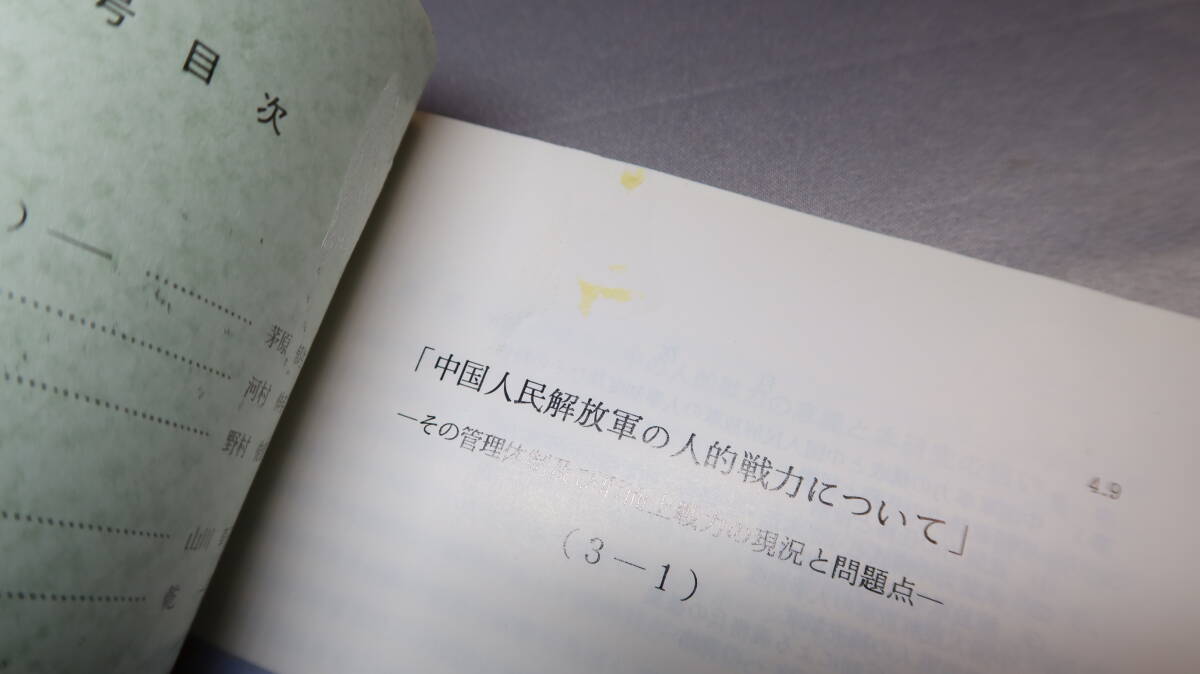 号目次
)—
茅原
河村
野村
山川
「中国人民解放軍の人的戦力について」
—その管理体制及び 上戦力の現況と問題点—
(3—1)
4.9